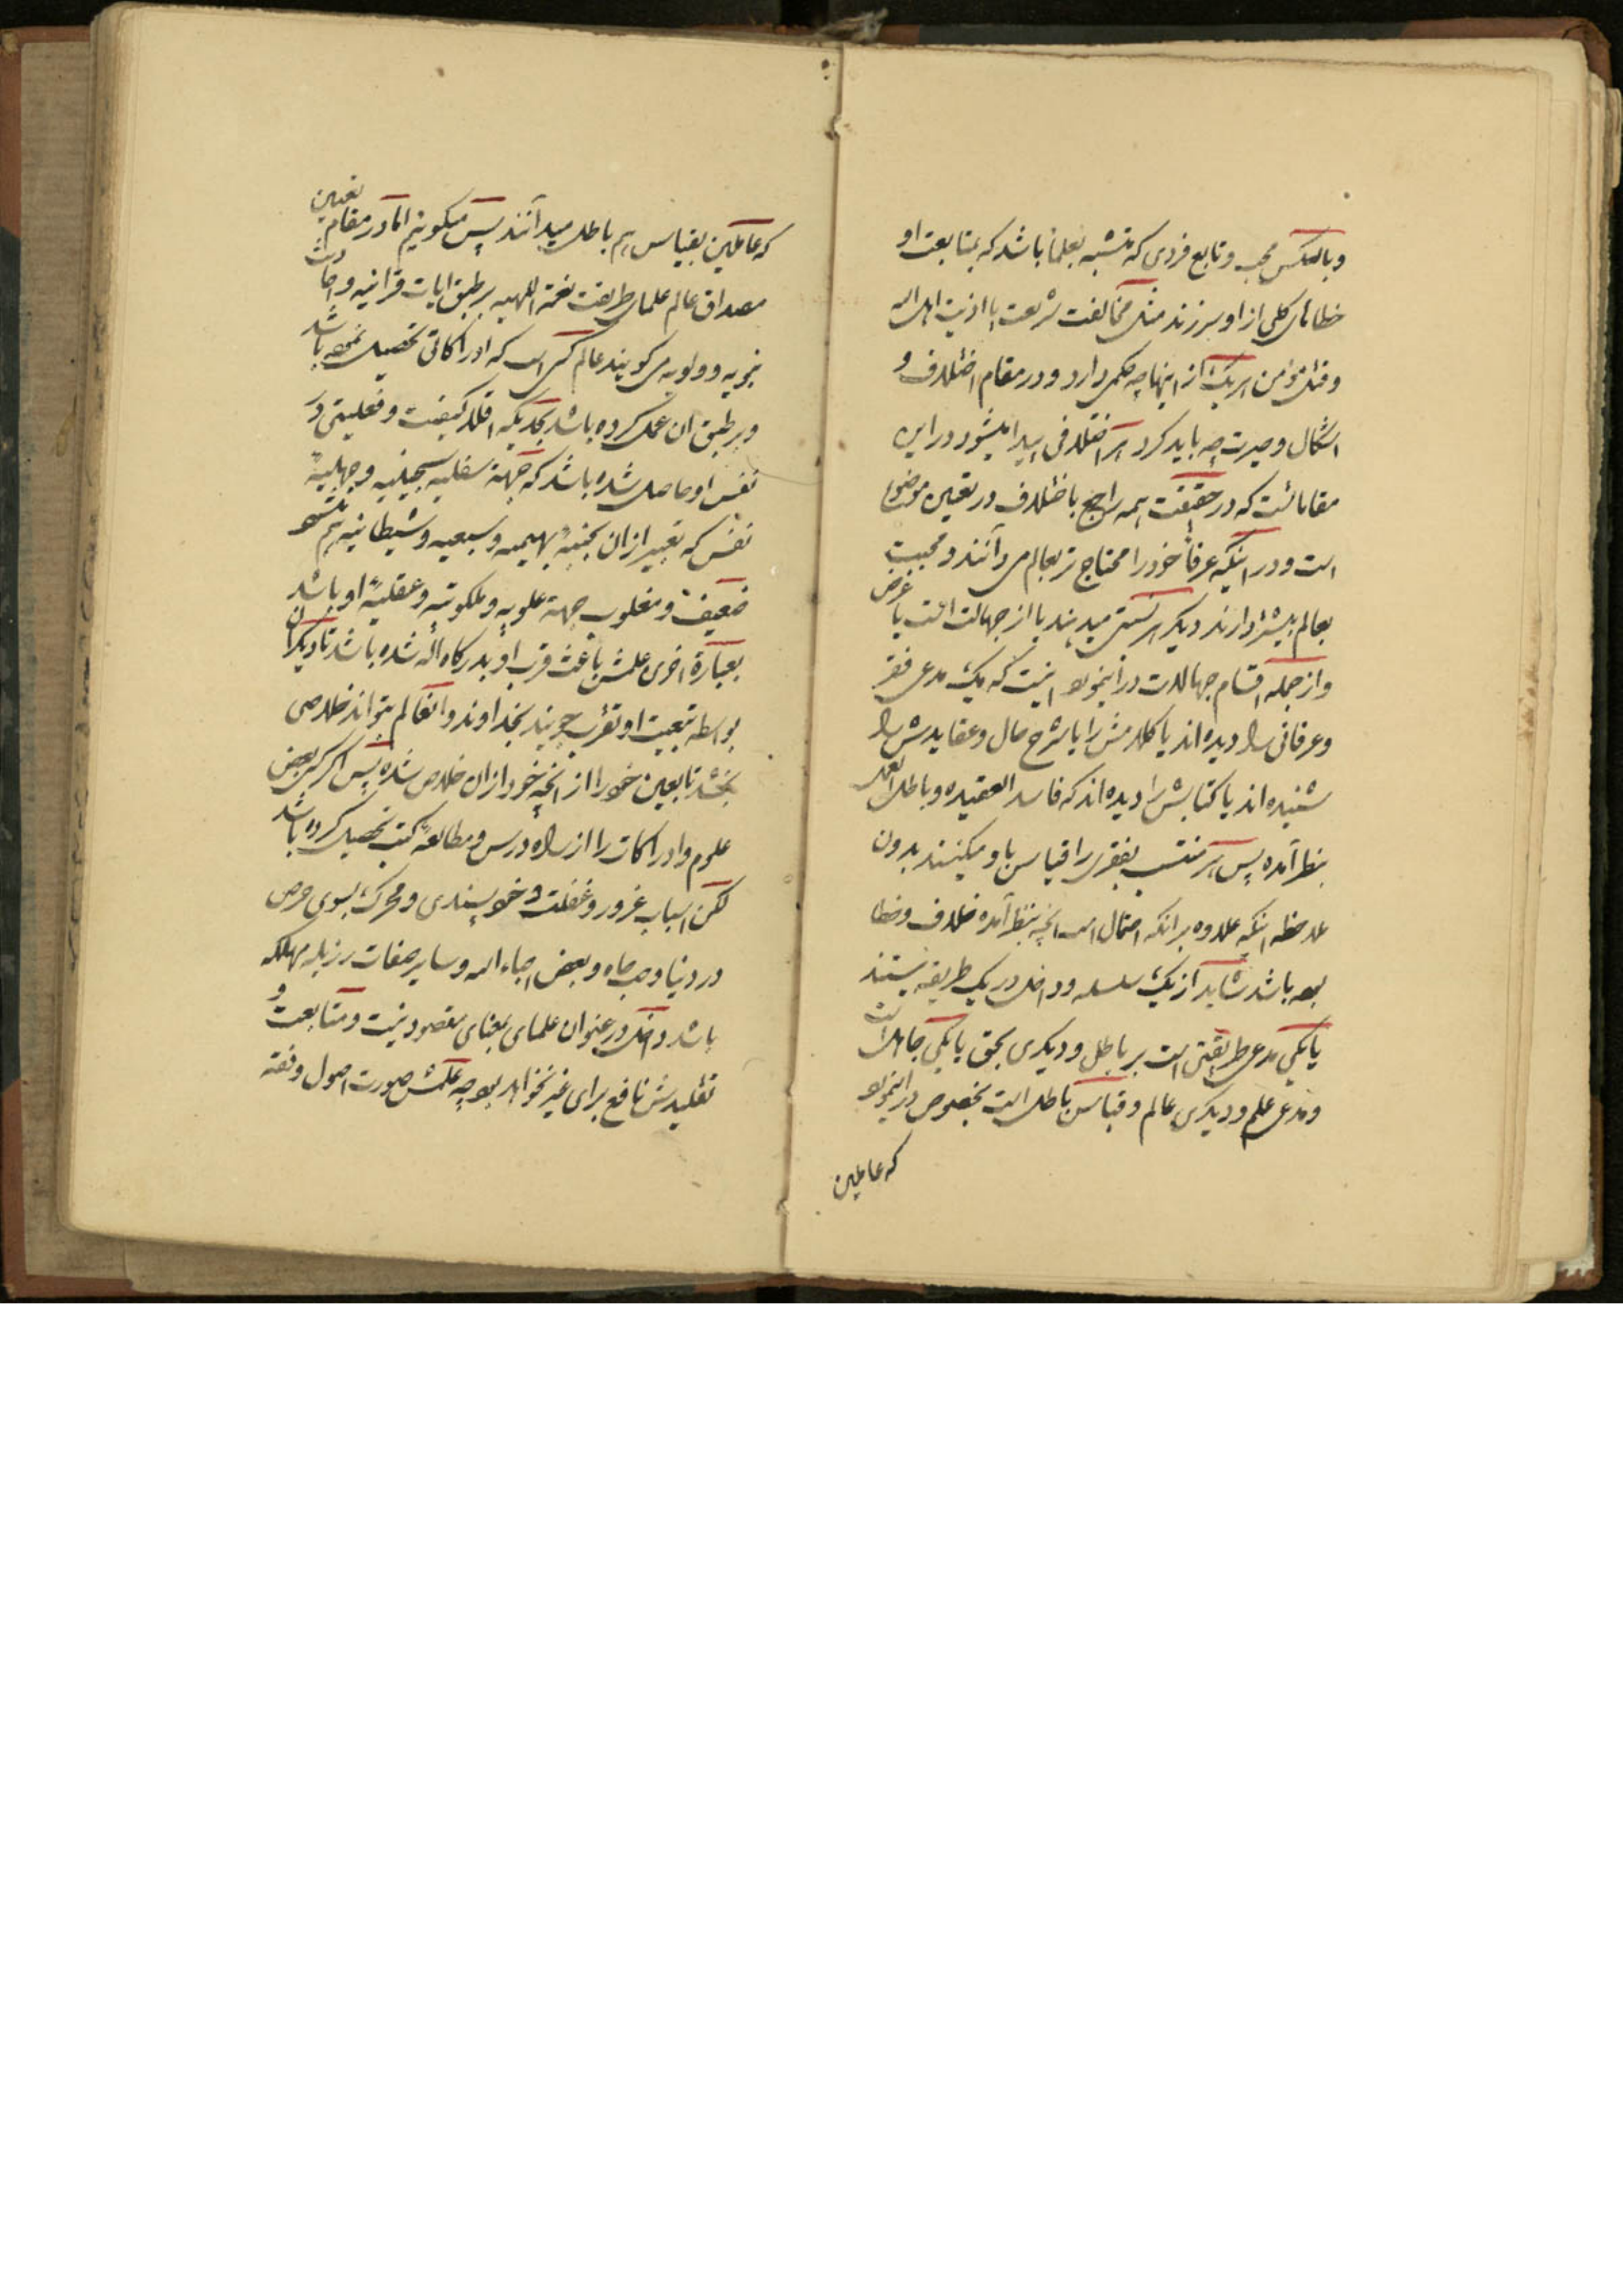 وبالعکس محب و تابع فردی که متشبه بعلما باشد که بمتابعت او
خطاهای کلی از او سر زند مثل مخالفت شریعت یا اذیت اهل الله
و قتل مؤمن هر یک از اینها چه حکمی دارد و در مقام اختلاف و
اشکال و حیرت چه باید کرد هر اختلافی پیدا میشود در این
مقامات است که در حقیقت همه راجع باختلاف در تعیین موضوع
است و در اینکه عرفا خود را محتاج تر بعالم می دانند و محبت
بعالم بیشتر دارند دیگر هر نسبتی میدهند یا از جهالت است یا غرض
و از جمله اقسام جهالات در اینمورد اینست که یک مدعی فقر
و عرفانی را دیده اند یا کلامش را یا شرح حال و عقایدش را
شنیده اند یا کتابش را دیده اند که فاسد العقیده و باطل العمل
بنظر آمده پس هر منتسب بفقری را قیاس باو میکنند بدون
ملاحظه اینکه علاوه بر انکه احتمال است انچه بنظر آمده خلاف و خطا
بوده باشد شاید از یک سلسله و داخل در یک طریقه نیستند
یا یکی مدعی طریقتی است بر باطل و دیگری بحق یا یکی جاهل است
و مدعی علم و دیگری عالم و قیاس باطل است بخصوص در اینمورد
که عاملین
که عاملین بقیاس هم باطل میدانند پس میگوییم اما در مقام تعیین
مصداق عالم علمای طریقت نعمة اللهیه بر طبق ایات قرانیه و احادیث
نبویه و ولویه می گویند عالم کسی است که ادراکاتی تحصیل نموده باشد
و بر طبق ان عمل کرده باشد بحدیکه اقلا کیفیت و فعلیتی در
نفس او حاصل شده باشد که جهة سفلیه سجینیه و جهلیهٔ
نفس که تعبیر از ان بجنبهٔ بهیمیه و سبعیه و شیطانیه هم میشود
ضعیف و مغلوب جهة علویه و ملکوتیه و عقلیهٔ او باشد
بعبارة اخری علمش باعث قرب او بدرگاه اله شده باشد تا دیگران
بواسطه تبعیت او تقرب جویند بخداوند و انعالم بتواند خلاصی
بخشد تابعین خود را از انچه خود از ان خلاص شده پس اگر کسی بعض
علوم و ادراکات را از راه درس و مطالعهٔ کتب تحصیل کرده باشد
لکن اسباب غرور و غفلت و خودپسندی و محرک بسوی حرص
در دنیا و حب جاه و بعض احباء الله و سایر صفات رزیله مهلکه
باشد داخل در عنوان علمای بمعنای مقصود نیست و متابعت و
تقلیدش نافع برای غیر نخواهد بود چه علمش صورت اصول و فقه